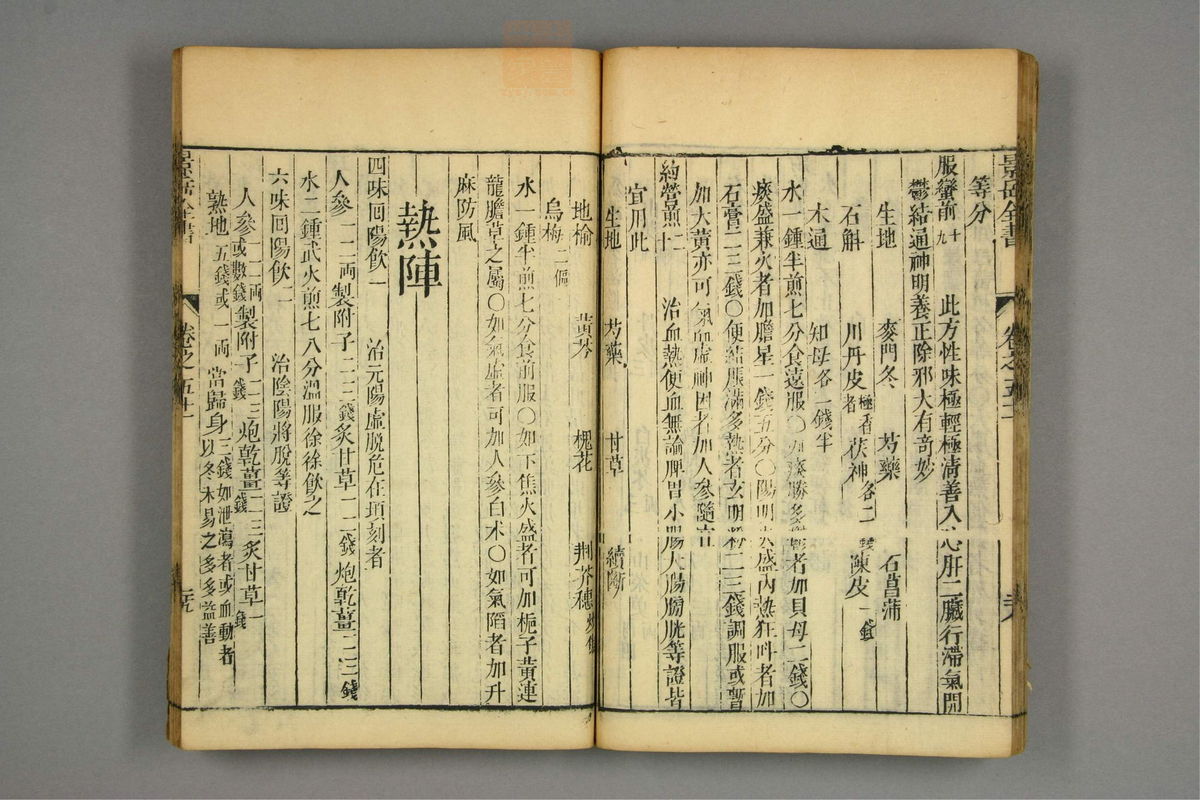 景岳全書 卷之五十一
等分
服蠻煎 十九 此方性味極輕極清善入心肝二臟行滯氣開
鬱結通神明養正除邪大有奇妙
生地 麥門冬 芍藥 石菖蒲
石斛 川丹皮 極香者 茯神 各二錢 陳皮 一錢
木通 知母 各一錢半
水一鍾半煎七分食遠服〇如痰勝多鬱者加貝母二錢〇
痰盛兼火者加膽星一錢五分〇陽明火盛內熱狂叫者加
石膏二三錢〇便結脹滿多熱者玄明粉二三錢調服或暫
加大黃亦可〇氣虛神困者加人參隨宜
約營煎 二十 治血熱便血無論脾胃小腸大腸膀胱等證皆
宜用此
生地 芍藥 甘草 續斷
地榆 黃芩 槐花 荆芥穗 炒焦
烏梅 二個
水一鍾半煎七分食前服〇如下焦火盛者可加梔子黃連
龍膽草之屬〇如氣虛者可加人參白朮〇如氣陷者加升
麻防風
熱陣
四味回陽飲 一 治元陽虛脫危在頃刻者
人參 一二兩 製附子 二三錢 炙甘草 一二錢 炮乾薑 二三錢
水二鍾武火煎七八分溫服徐徐飲之
六味回陽飲 二 治陰陽將脫等證
人參 一二兩或數錢 製附子 二三錢 炮乾薑 二三錢 炙甘草 一錢
熟地 五錢或一兩 當歸身 三錢如泄瀉者或血動者以冬朮易之多多益善
景岳全書 卷之五十一